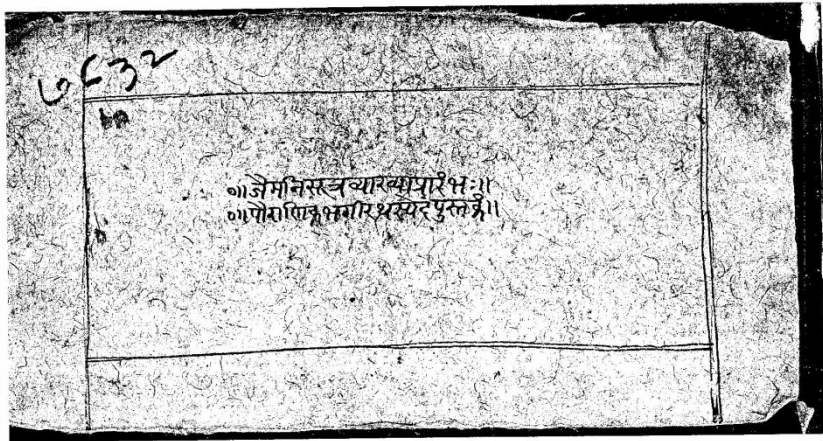 ७६३२
०॥जैमनिसूत्रव्याख्याप्रारंभः॥
०॥पौराणिकभगीरथस्येदंपुस्तकं॥